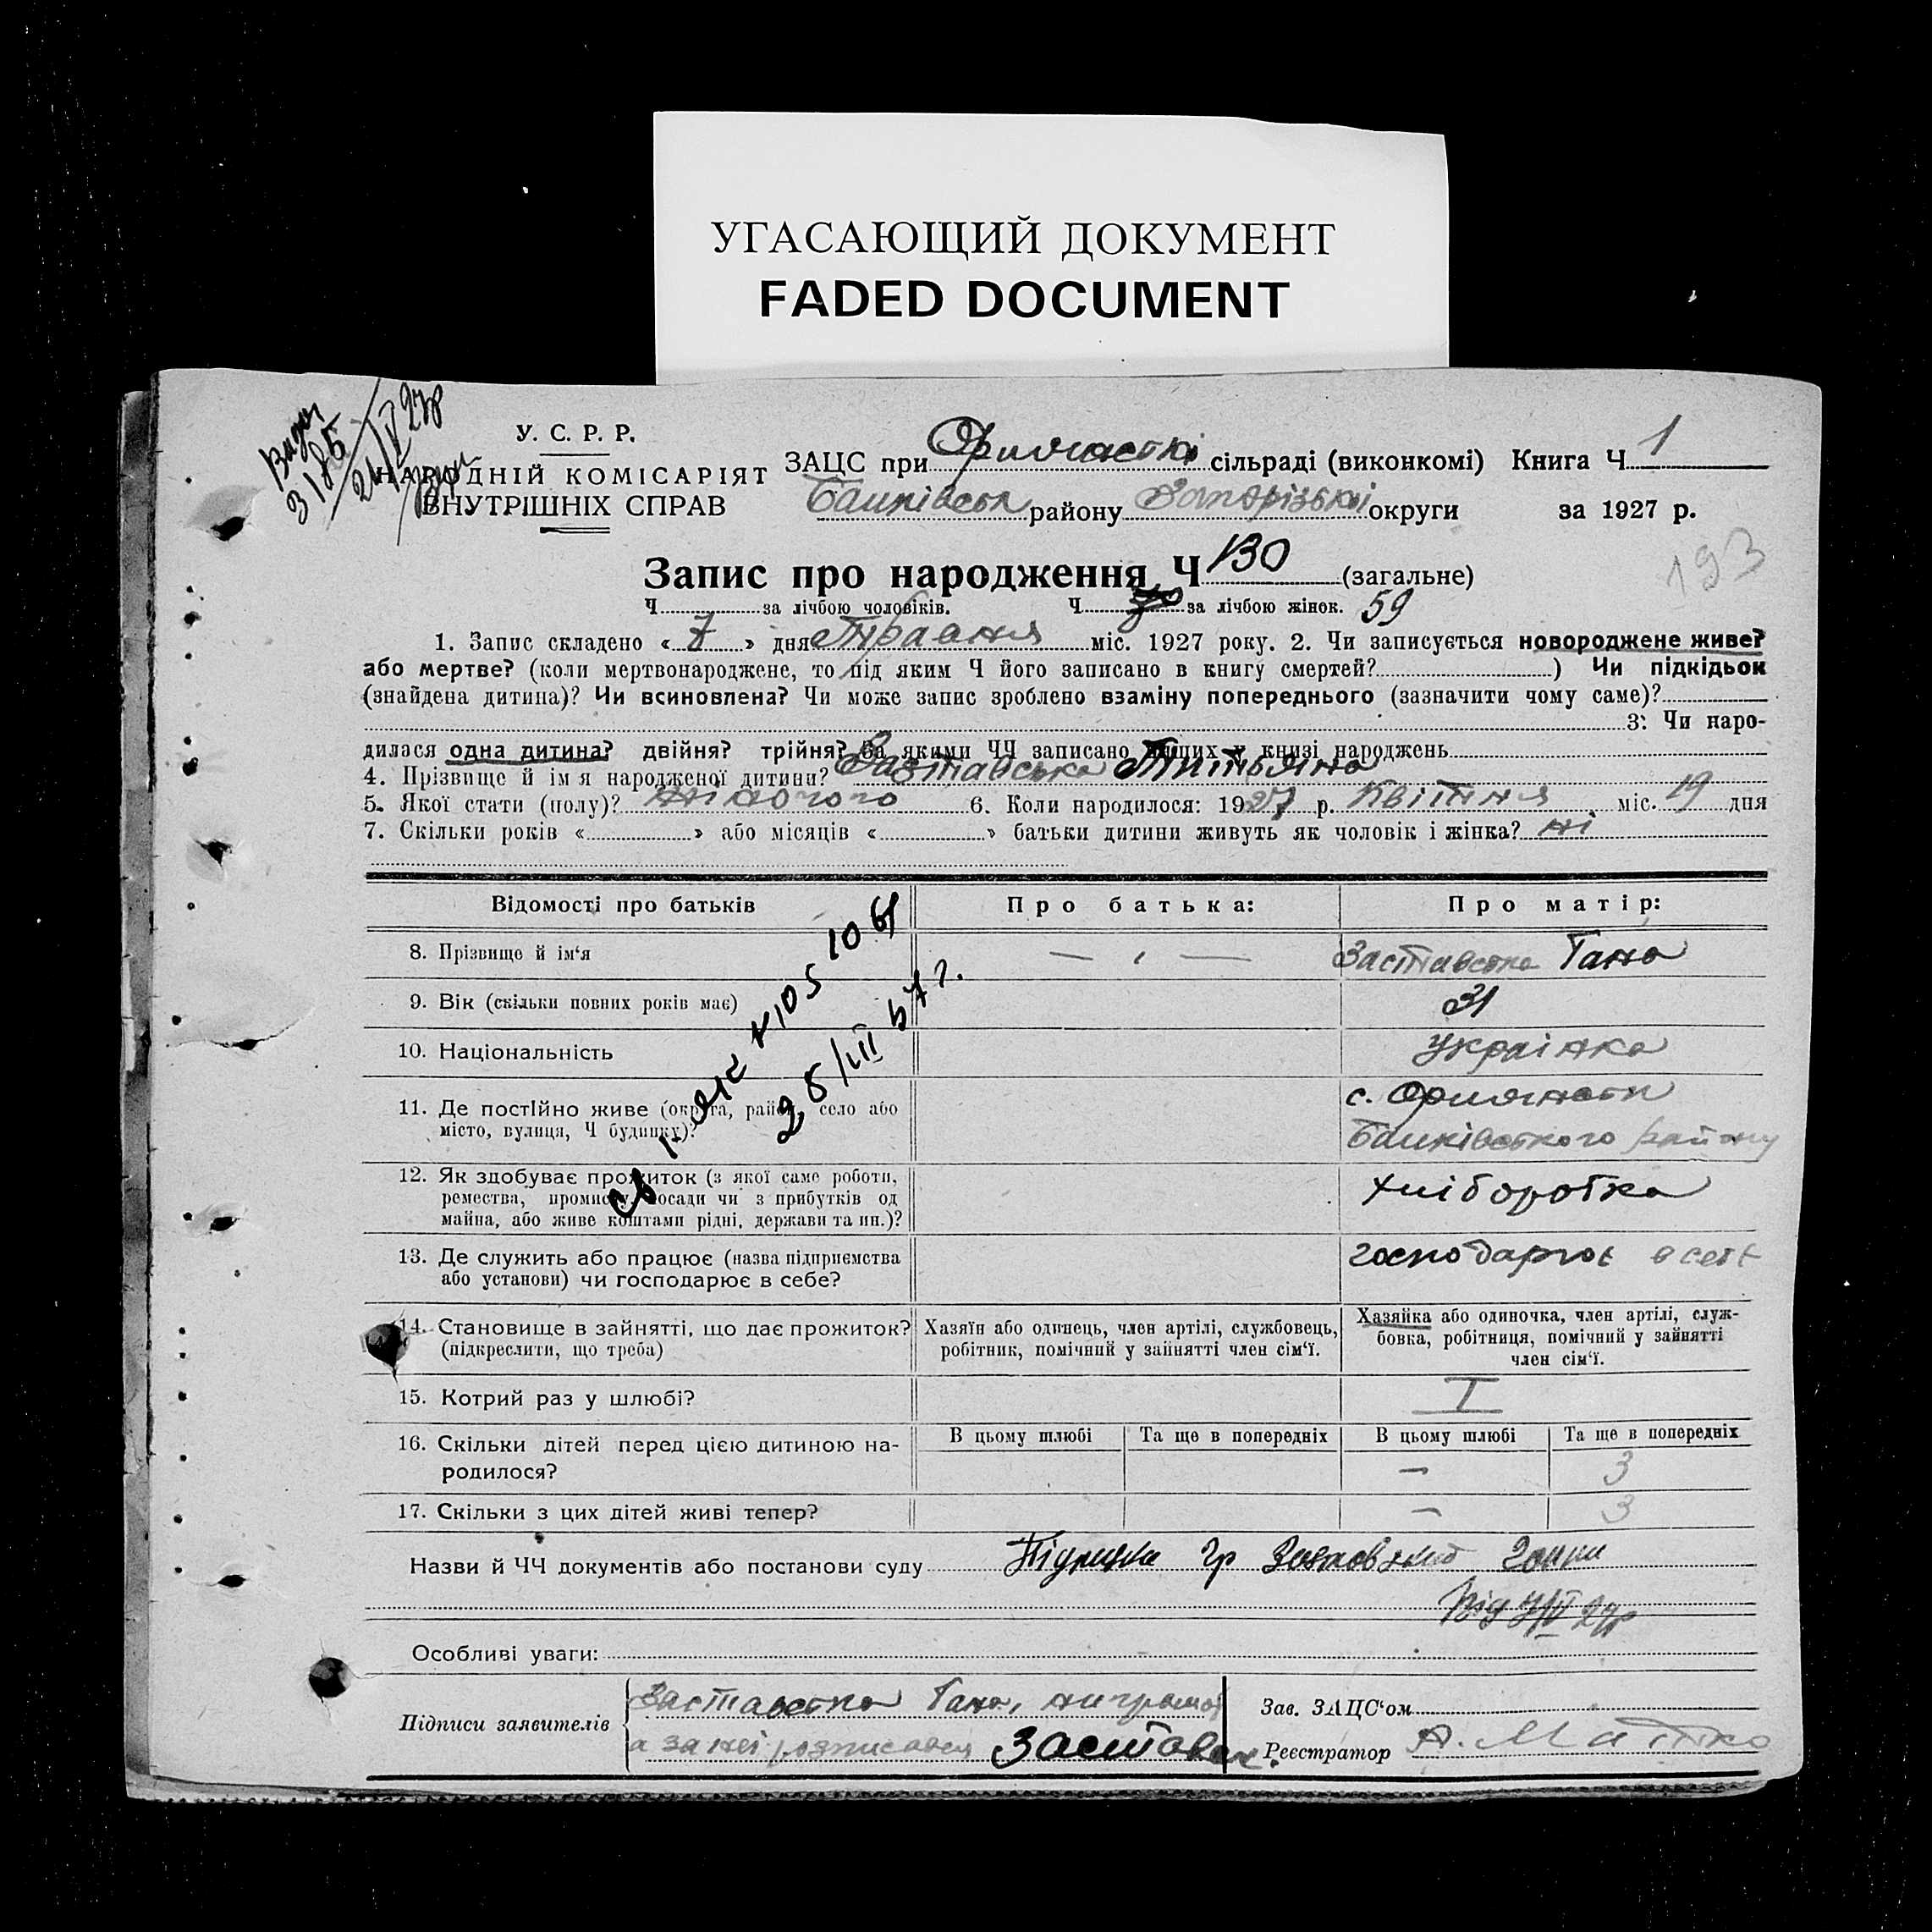 УГАСАЮЩИЙ ДОКУМЕНТ
FADED DOCUMENT
У. С. Р. Р.
НАРОДНІЙ КОМІСАРІЯТ
ВНУТРІШНІХ СПРАВ
ЗАЦС при сільраді (виконкомі) Книга Ч 1
району Запорізької округи за 1927 р.
193
Запис про народження Ч 130 (загальне)
Ч за лічбою чоловіків. Ч за лічбою жінок. 59
1. Запис складено « 7 » дня Травня міс. 1927 року. 2. Чи записується новороджене живе?
або мертве? (коли мертвонароджене, то під яким Ч його записано в книгу смертей? ) Чи підкідьок
(знайдена дитина)? Чи всиновлена? Чи може запис зроблено взаміну попереднього (зазначити чому саме)?
3: Чи наро-
дилася одна дитина? двійня? трійня? За якими ЧЧ записано інших у книзі народжень
4. Прізвище й ім я народженої дитини? Заставська
5. Якої стати (полу)? жіночого 6. Коли народилося: 1927 р. Квітня міс. 19 дня
7. Скільки років « » або місяців « » батьки дитини живуть як чоловік і жінка? ні
Відомості про батьків Про батька: Про матір:
8. Прізвище й ім'я — — Заставська Гана
9. Вік (скільки повних років має) 31
10. Національність Українка
11. Де постійно живе (округа, район, село або
місто, вулиця, Ч будинку)? с.
району
12. Як здобуває прожиток (з якої саме роботи,
ремества, промислу, посади чи з прибутків од
майна, або живе коштами рідні, держави та ин.)? хліборобка
13. Де служить або працює (назва підприємства
або установи) чи господарює в себе? господарює в себе
14. Становище в зайнятті, що дає прожиток?
(підкреслити, що треба)
Хазяїн або одинець, член артілі, службовець,
робітник, помічний у зайнятті член сім'ї.
Хазяйка або одиночка, член артілі, служ-
бовка, робітниця, помічний у зайнятті
член сім'ї.
15. Котрий раз у шлюбі? I
16. Скільки дітей перед цією дитиною на-
родилося?
В цьому шлюбі Та ще в попередніх В цьому шлюбі Та ще в попередніх
— 3
17. Скільки з цих дітей живі тепер? — 3
Назви й ЧЧ документів або постанови суду
Особливі уваги:
Підписи заявителів
Заставська Гана,
а за неї розписався
Зав. ЗАЦС'ом
Реєстратор